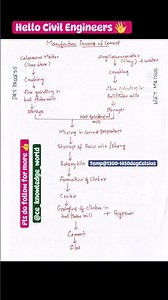 Hello Civil Engineers 👋
Manufacture Process of Cement
Calcareous Matter
(lime stone)
Argillaceous matter
(clay) + water
Crushing
Crushing
Fine grinding in
ball /tube mills
Fine Grinding in
Ball/tube mills
Storage
Storage
DRY PROCESS
Wet Grinding
mill
Mixing in Correct proportion
Storage of Raw mix /slurry
Rotary kiln
temp@1300-1450degCelsius
Formation of Clinker
Cooler
Grinding of Clinker in
ball /tube mill + Gypsum
Cement
Silos
Pls do follow for more 👋
@ce knowledge world